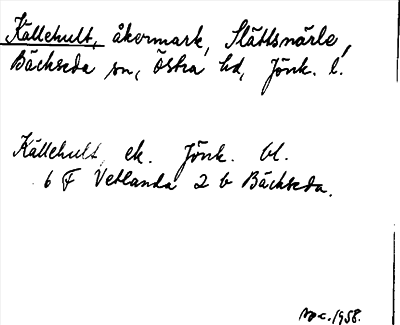 Källehult, åkermark, Slättsnärle,
Bäckseda sn, Östra hd, Jönk. l.
Källehult ek. Jönk. bl.
6 F Vetlanda 2 b Bäckseda.
1958.